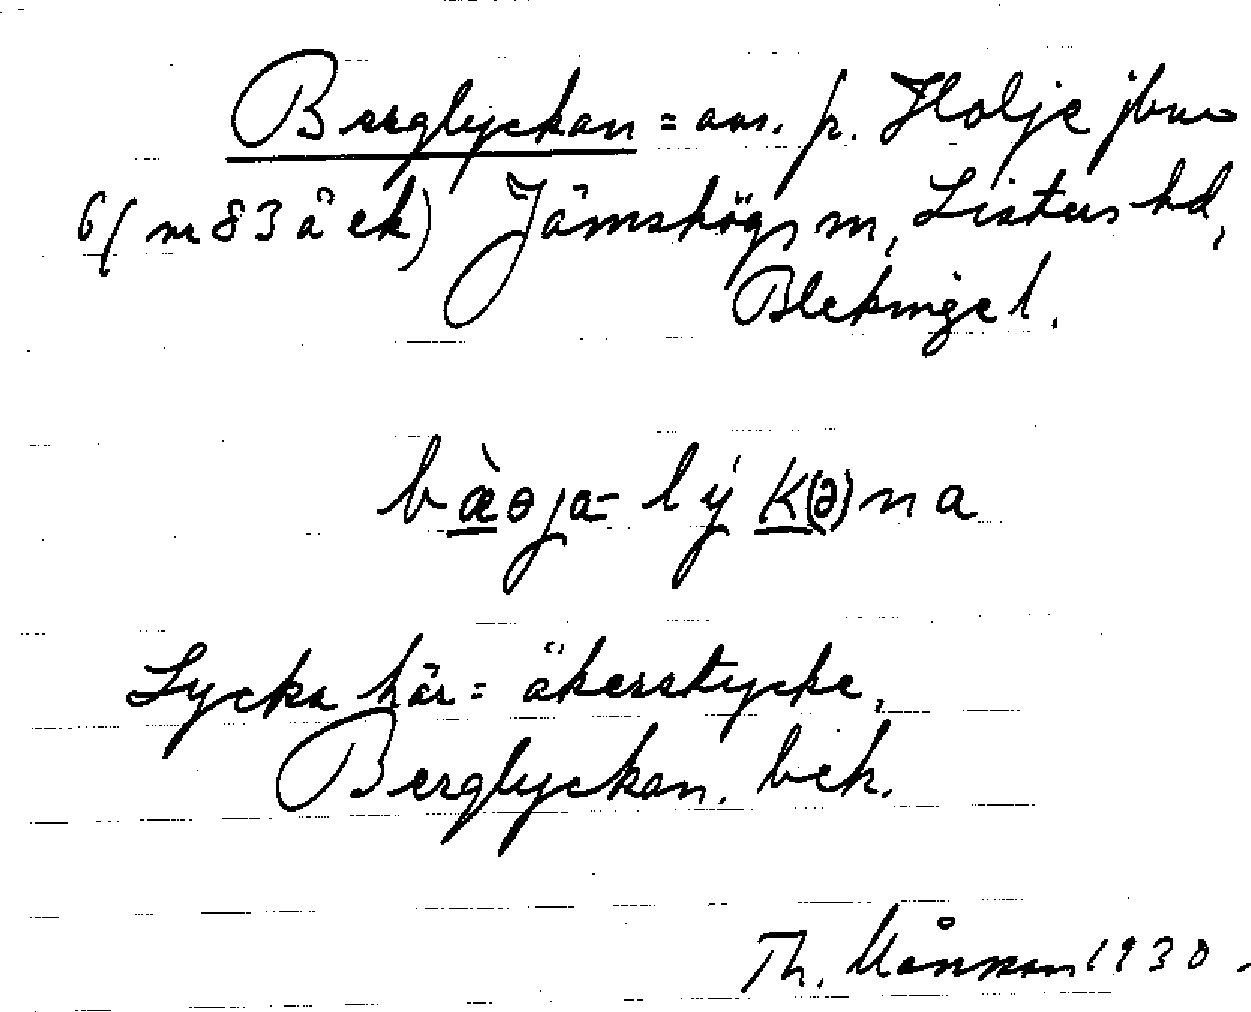 Berglyckan = åar. p. Holje jbno
6 (nr 83 å ek) Jämshögs sn, Listers hd,
Blekinge l.
bæ̀ɵja- lý K(ə)na
Lycka här = åkerstycke,
Berglyckan. bek.
Th. Månsson 1930.